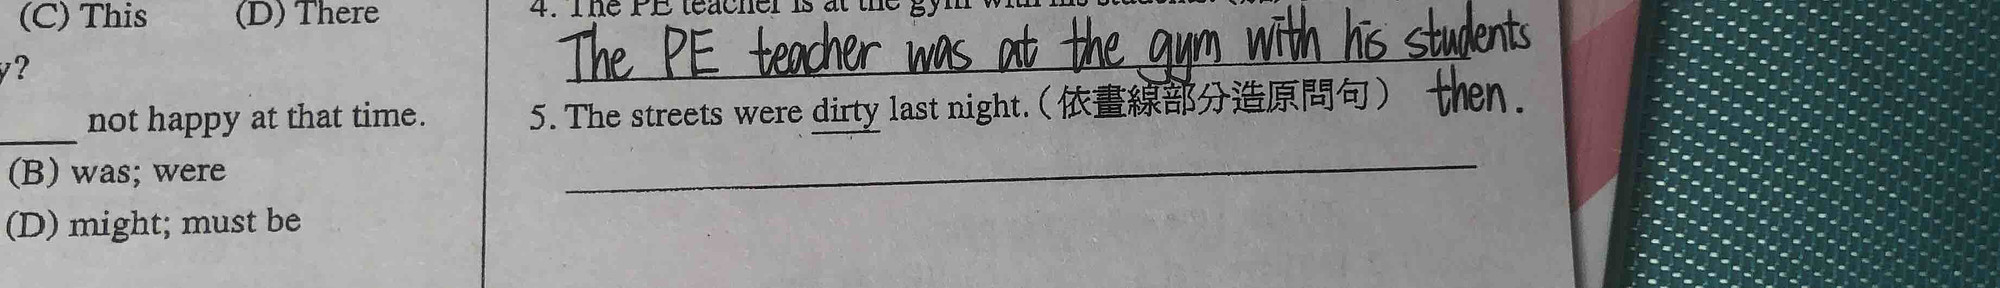 (C) This (D) There
y?
not happy at that time.
(B) was; were
(D) might; must be
4. The PE teacher is at the gym with his students.
The PE teacher was at the gym with his students
then.
5. The streets were dirty last night. (依畫線部分造原問句)